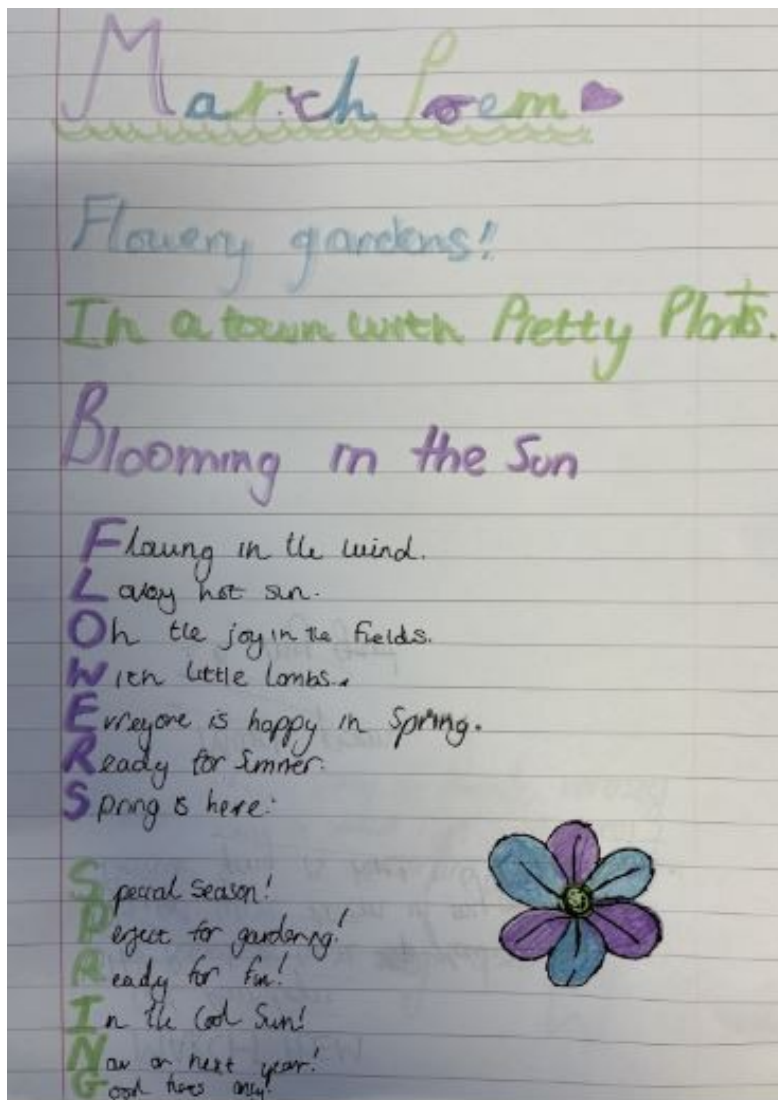 March Poem
Flowery gardens!
In a town with Pretty Plants.
Blooming in the Sun
Flowing in the wind.
Lovley hot sun.
Oh the joy in the fields.
With little lambs.
Evreyone is happy in Spring.
Ready for Summer.
Spring is here.
Special Season!
Perfect for gardening!
Ready for fun!
In the Cool Sun!
Now or next year!
Good times only!